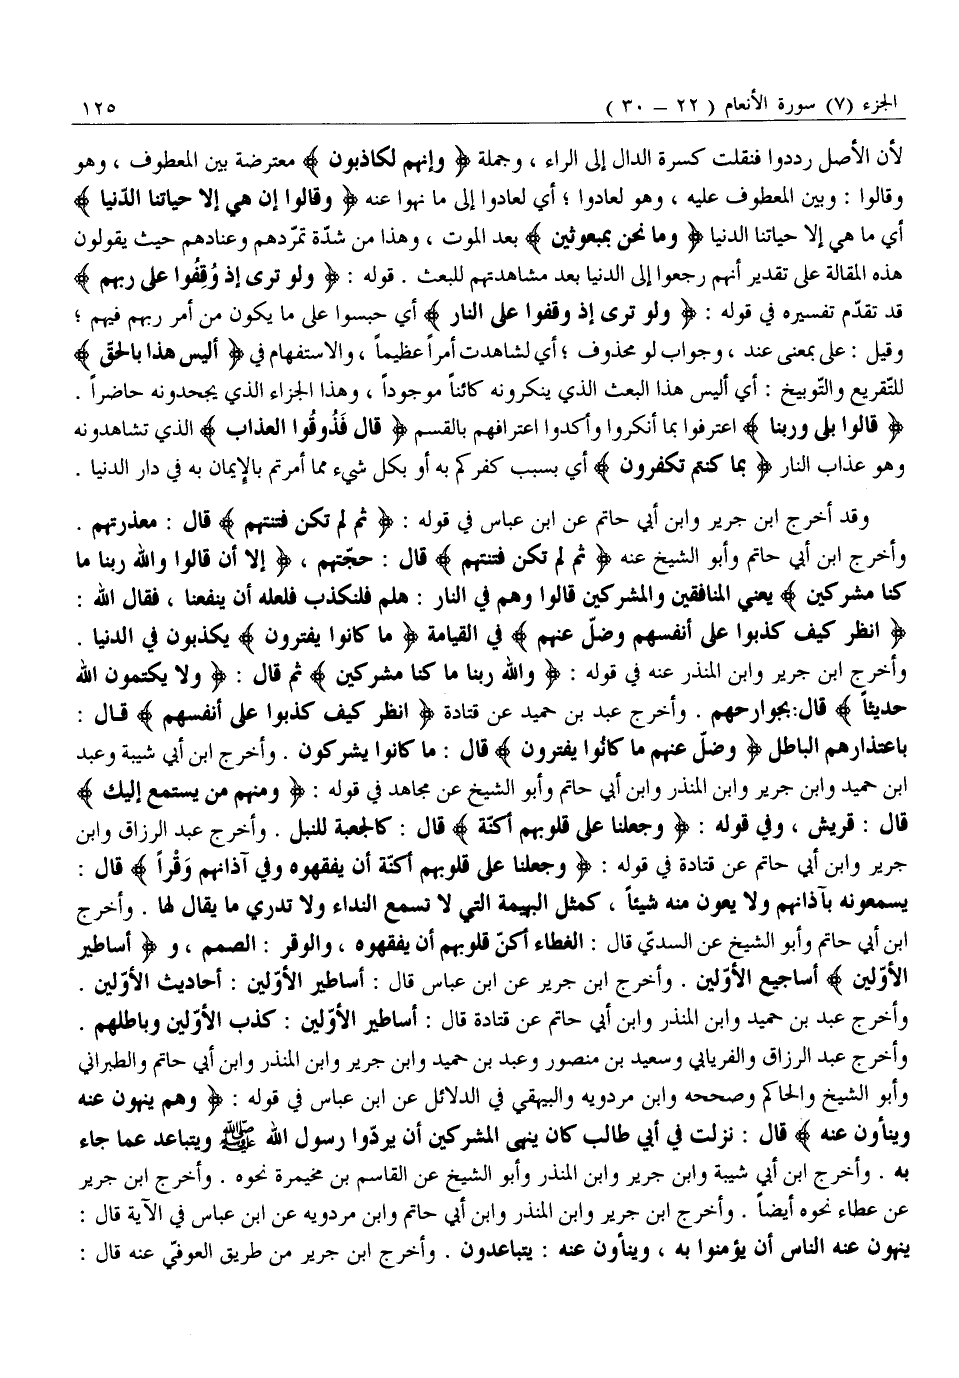 الجزء (٧) سورة الأنعام ( ٢٢ – ٣٠ ) ١٢٥
لأن الأصل رددوا فنقلت كسرة الدال إلى الراء ، وجملة ﴿ وإنهم لكاذبون ﴾ معترضة بين المعطوف ، وهو
وقالوا : وبين المعطوف عليه ، وهو لعادوا ؛ أي لعادوا إلى ما نهوا عنه ﴿ وقالوا إن هي إلا حياتنا الدّنيا ﴾
أي ما هي إلا حياتنا الدنيا ﴿ وما نحن بمبعوثين ﴾ بعد الموت ، وهذا من شدّة تمرّدهم وعنادهم حيث يقولون
هذه المقالة على تقدير أنهم رجعوا إلى الدنيا بعد مشاهدتهم للبعث . قوله : ﴿ ولو ترى إذ وُقِفُوا على ربهم ﴾
قد تقدّم تفسيره في قوله : ﴿ ولو ترى إذ وقفوا على النار ﴾ أي حبسوا على ما يكون من أمر ربهم فيهم ؛
وقيل : على بمعنى عند ، وجواب لو محذوف ؛ أي لشاهدت أمراً عظيماً ، والاستفهام في ﴿ أليس هذا بالحقّ ﴾
للتّقريع والتّوبيخ : أي أليس هذا البعث الذي ينكرونه كائناً موجوداً ، وهذا الجزاء الذي يجحدونه حاضراً .
﴿ قالوا بلى وربنا ﴾ اعترفوا بما أنكروا وأكدوا اعترافهم بالقسم ﴿ قال فَذُوقُوا العذاب ﴾ الذي تشاهدونه
وهو عذاب النار ﴿ بما كنتم تكفرون ﴾ أي بسبب كفركم به أو بكل شيء مما أمرتم بالإيمان به في دار الدنيا .
وقد أخرج ابن جرير وابن أبي حاتم عن ابن عباس في قوله : ﴿ ثم لم تكن فتنتهم ﴾ قال : معذرتهم .
وأخرج ابن أبي حاتم وأبو الشيخ عنه ﴿ ثم لم تكن فتنتهم ﴾ قال : حجّتهم ، ﴿ إلا أن قالوا والله ربنا ما
كنا مشركين ﴾ يعني المنافقين والمشركين قالوا وهم في النار : هلم فلنكذب فلعله أن ينفعنا ، فقال الله :
﴿ انظر كيف كذبوا على أنفسهم وضلّ عنهم ﴾ في القيامة ﴿ ما كانوا يفترون ﴾ يكذبون في الدنيا .
وأخرج ابن جرير وابن المنذر عنه في قوله : ﴿ والله ربنا ما كنا مشركين ﴾ ثم قال : ﴿ ولا يكتمون الله
حديثاً ﴾ قال: بجوارحهم . وأخرج عبد بن حميد عن قتادة ﴿ انظر كيف كذبوا على أنفسهم ﴾ قال :
باعتذارهم الباطل ﴿ وضلّ عنهم ما كانُوا يفترون ﴾ قال : ما كانوا يشركون . وأخرج ابن أبي شيبة وعبد
ابن حميد وابن جرير وابن المنذر وابن أبي حاتم وأبو الشيخ عن مجاهد في قوله : ﴿ ومنهم من يستمع إليك ﴾
قال : قريش ، وفي قوله : ﴿ وجعلنا على قلوبهم أكنّة ﴾ قال : كالجعبة للنبل . وأخرج عبد الرزاق وابن
جرير وابن أبي حاتم عن قتادة في قوله : ﴿ وجعلنا على قلوبهم أكنّة أن يفقهوه وفي آذانهم وَقْراً ﴾ قال :
يسمعونه بآذانهم ولا يعون منه شيئاً ، كمثل البهيمة التي لا تسمع النداء ولا تدري ما يقال لها . وأخرج
ابن أبي حاتم وأبو الشيخ عن السديّ قال : الغطاء أكنّ قلوبهم أن يفقهوه ، والوقر : الصمم ، و ﴿ أساطير
الأوّلين ﴾ أساجيع الأوّلين . وأخرج ابن جرير عن ابن عباس قال : أساطير الأوّلين : أحاديث الأوّلين .
وأخرج عبد بن حميد وابن المنذر وابن أبي حاتم عن قتادة قال : أساطير الأوّلين : كذب الأوّلين وباطلهم .
وأخرج عبد الرزاق والفريابي وسعيد بن منصور وعبد بن حميد وابن جرير وابن المنذر وابن أبي حاتم والطبراني
وأبو الشيخ والحاكم وصححه وابن مردويه والبيهقي في الدلائل عن ابن عباس في قوله : ﴿ وهم ينهون عنه
وينأون عنه ﴾ قال : نزلت في أبي طالب كان ينهى المشركين أن يردّوا رسول الله ﷺ ويتباعد عما جاء
به . وأخرج ابن أبي شيبة وابن جرير وابن المنذر وأبو الشيخ عن القاسم بن مخيمرة نحوه . وأخرج ابن جرير
عن عطاء نحوه أيضاً . وأخرج ابن جرير وابن المنذر وابن أبي حاتم وابن مردويه عن ابن عباس في الآية قال :
ينهون عنه الناس أن يؤمنوا به ، وينأون عنه : يتباعدون . وأخرج ابن جرير من طريق العوفيّ عنه قال :